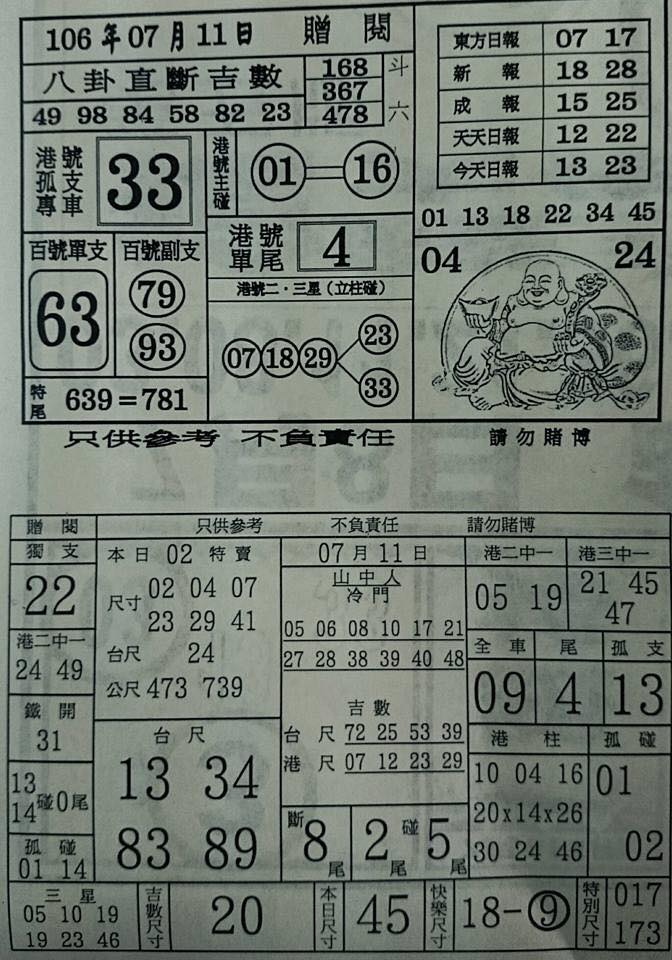 106年07月11日 贈閱
八卦直斷吉數
49 98 84 58 82 23
168
367
478
斗
六
港號
孤支
專車
33
港號主碰
01=16
港號
單尾
4
百號單支
63
百號副支
79
93
特尾
639=781
港號二·三星(立柱碰)
07 18 29
23
33
東方日報 07 17
新報 18 28
成報 15 25
天天日報 12 22
今天日報 13 23
01 13 18 22 34 45
04
24
只供參考 不負責任 請勿賭博
贈閱 只供參考 不負責任 請勿賭博
獨支
22
港二中一
24 49
鐵開
31
13
14碰0尾
孤碰
01 14
本日02特賣
尺寸 02 04 07
23 29 41
台尺 24
公尺 473 739
台尺
13 34
83 89
07月11日
山中人
冷門
05 06 08 10 17 21
27 28 38 39 40 48
吉數
台尺 72 25 53 39
港尺 07 12 23 29
斷8尾
2尾
碰5尾
港二中一
05 19
港三中一
21 45
47
全車
09
尾
4
孤支
13
港柱
10 04 16
20x14x26
30 24 46
孤碰
01
02
三星
05 10 19
19 23 46
吉數尺寸
20
本日尺寸
45
快樂尺寸
18-9
特別尺寸
017
173